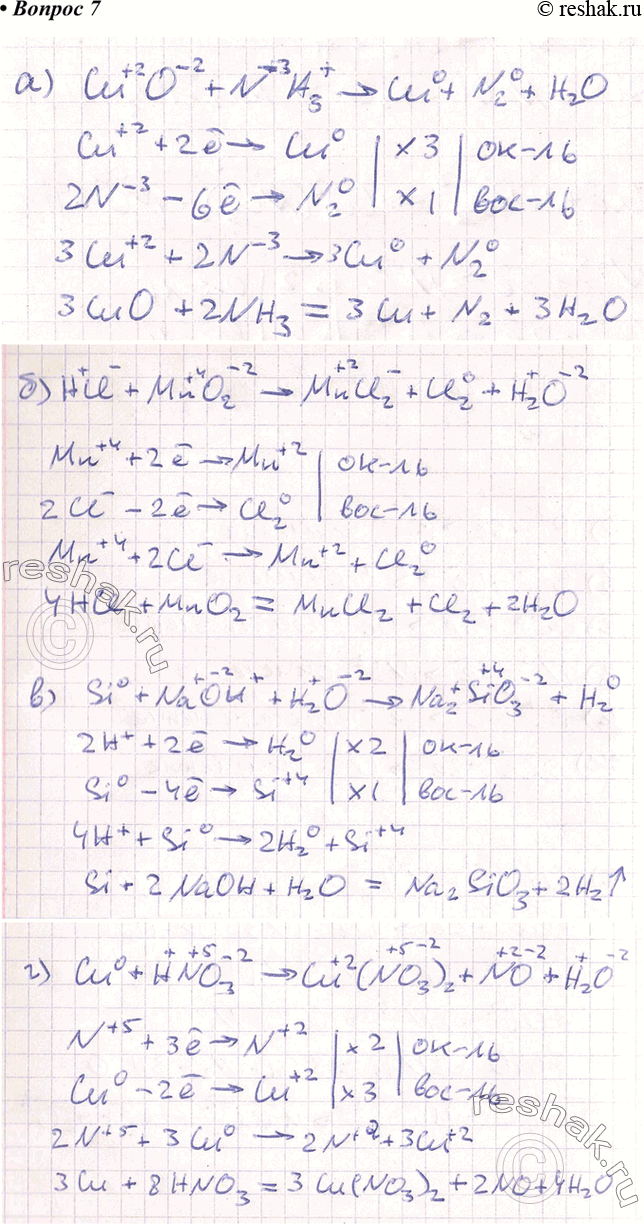 • Вопрос 7
© reshak.ru
а) Cu⁺²O⁻² + N⁻³H₃⁺ → Cu⁰ + N₂⁰ + H₂O
Cu⁺² + 2ē → Cu⁰ | x 3 | ок-ль
2N⁻³ - 6ē → N₂⁰ | x 1 | вос-ль
3Cu⁺² + 2N⁻³ → 3Cu⁰ + N₂⁰
3CuO + 2NH₃ = 3Cu + N₂ + 3H₂O
б) H⁺Cl⁻ + Mn⁺⁴O₂⁻² → Mn⁺²Cl₂⁻ + Cl₂⁰ + H₂⁺O⁻²
Mn⁺⁴ + 2ē → Mn⁺² | ок-ль
2Cl⁻ - 2ē → Cl₂⁰ | вос-ль
Mn⁺⁴ + 2Cl⁻ → Mn⁺² + Cl₂⁰
4HCl + MnO₂ = MnCl₂ + Cl₂ + 2H₂O
в) Si⁰ + Na⁺O⁻²H⁺ + H₂⁺O⁻² → Na₂⁺Si⁺⁴O₃⁻² + H₂⁰
2H⁺ + 2ē → H₂⁰ | x 2 | ок-ль
Si⁰ - 4ē → Si⁺⁴ | x 1 | вос-ль
4H⁺ + Si⁰ → 2H₂⁰ + Si⁺⁴
Si + 2NaOH + H₂O = Na₂SiO₃ + 2H₂↑
г) Cu⁰ + H⁺N⁺⁵O₃⁻² → Cu⁺²(N⁺⁵O₃⁻²)₂ + N⁺²O⁻² + H₂⁺O⁻²
N⁺⁵ + 3ē → N⁺² | x 2 | ок-ль
Cu⁰ - 2ē → Cu⁺² | x 3 | вос-ль
2N⁺⁵ + 3Cu⁰ → 2N⁺² + 3Cu⁺²
3Cu + 8HNO₃ = 3Cu(NO₃)₂ + 2NO + 4H₂O
reshak.ru
©
reshak.ru
©